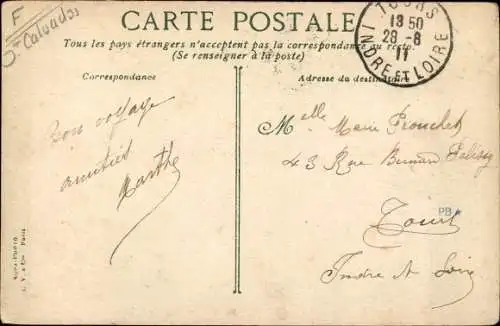 F
Ct Calvados
CARTE POSTALE
Tous les pays étrangers n'acceptent pas la correspondance au recto.
(Se renseigner à la poste)
Correspondance
Adresse du destinataire
TOURS
13 50
28 - 8
11
INDRE ET LOIRE
Bon voyage
amitiés
Marthe
Melle Marie Prouchet
43 Rue Bernard Palissy
Tours
PB
Indre et Loire